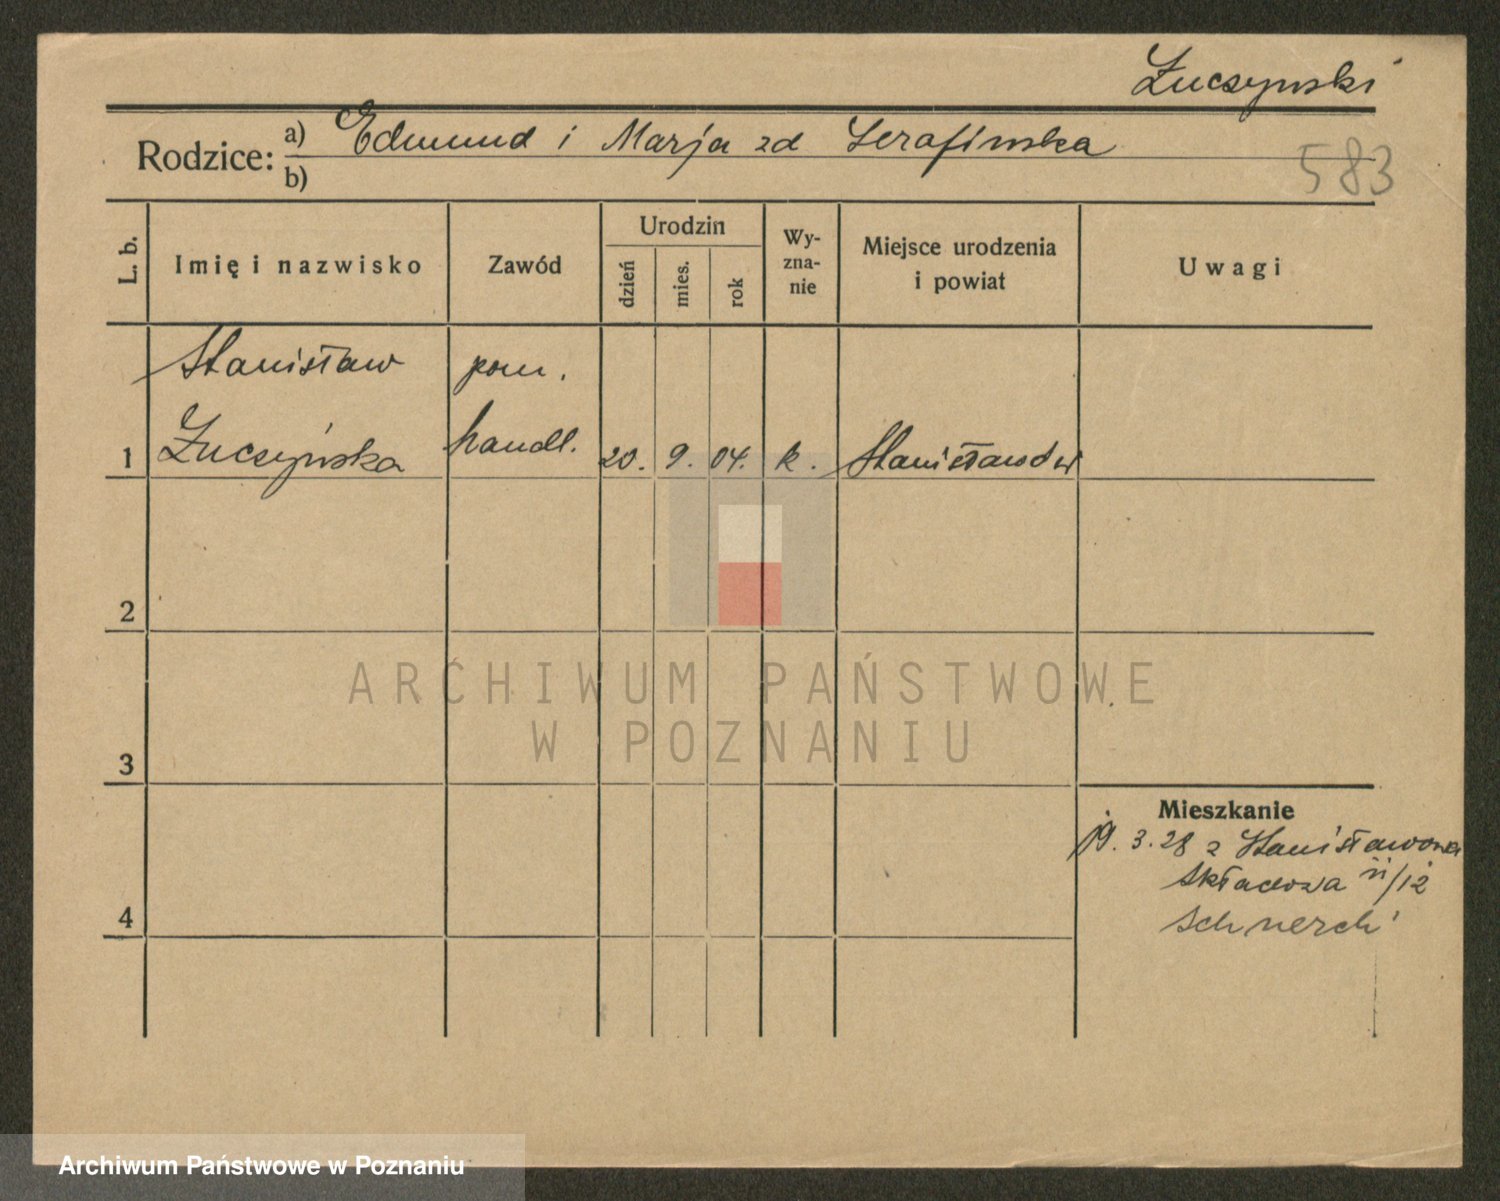 Łuczynski
Rodzice: a) Edmund i Marja zd Serafinska
b)
583
L. b.
Imię i nazwisko
Zawód
Urodzin
dzień
mies.
rok
Wy-
zna-
nie
Miejsce urodzenia
i powiat
Uwagi
Stanisław pom.
1 Łuczyńska handl. 20. 9. 04. k. Stanisławów
2
ARCHIWUM PAŃSTWOWE
W POZNANIU
3
Mieszkanie
19. 3. 28 z Stanisławowa
Składowa 11/12
4
Archiwum Państwowe w Poznaniu